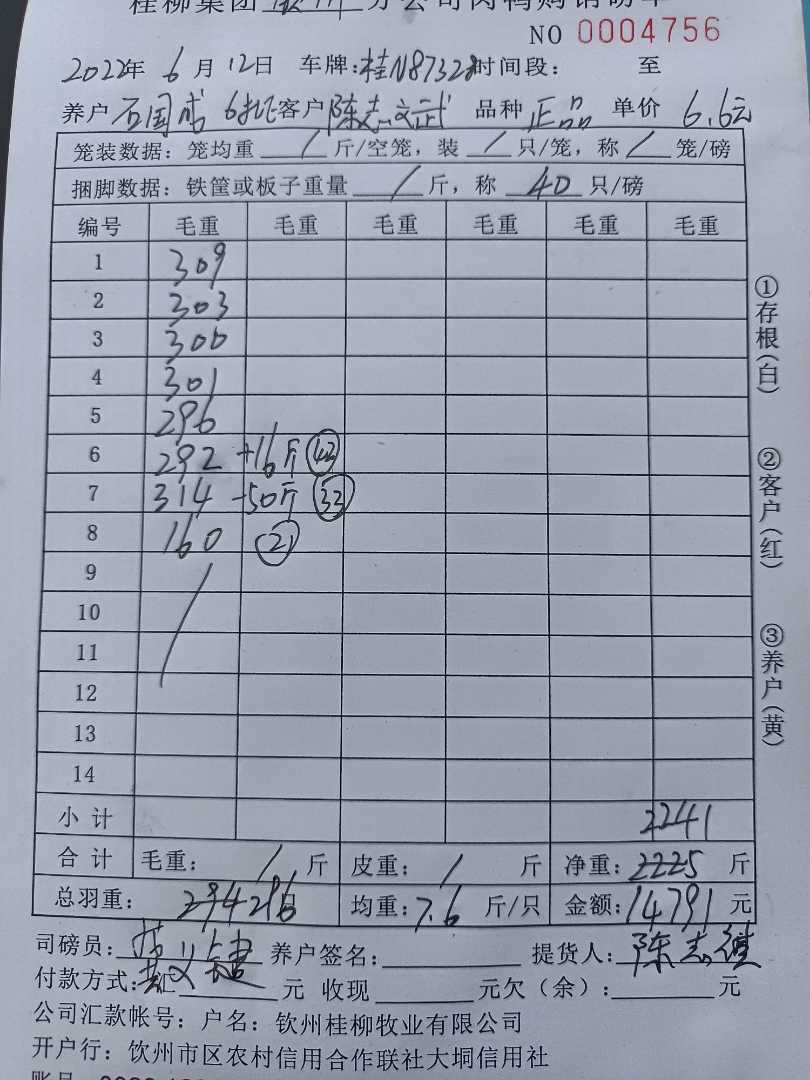 桂柳集团 分公司肉鸭购销磅单
NO 0004756
2022年 6月12日 车牌:桂N87328 时间段: 至
养户 石国成 6批 客户 陈志 品种 正品 单价 6.6元
笼装数据: 笼均重 / 斤/空笼, 装 / 只/笼, 称 / 笼/磅
捆脚数据: 铁筐或板子重量 / 斤, 称 40 只/磅
编号 毛重 毛重 毛重 毛重 毛重 毛重
1 309
2 303
3 300
4 301
5 296
6 292 +16斤 42
7 314 -50斤 33
8 160 21
9 /
10
11
12
13
14
小计 2241
合计 毛重: / 斤 皮重: / 斤 净重: 2225 斤
总羽重: 294 296 均重: 7.6 斤/只 金额: 14791 元
司磅员: 养户签名: 提货人: 陈志
付款方式: 汇 元 收现 元欠(余): 元
公司汇款帐号: 户名: 钦州桂柳牧业有限公司
开户行: 钦州市区农村信用合作联社大垌信用社
①存根(白)
②客户(红)
③养户(黄)